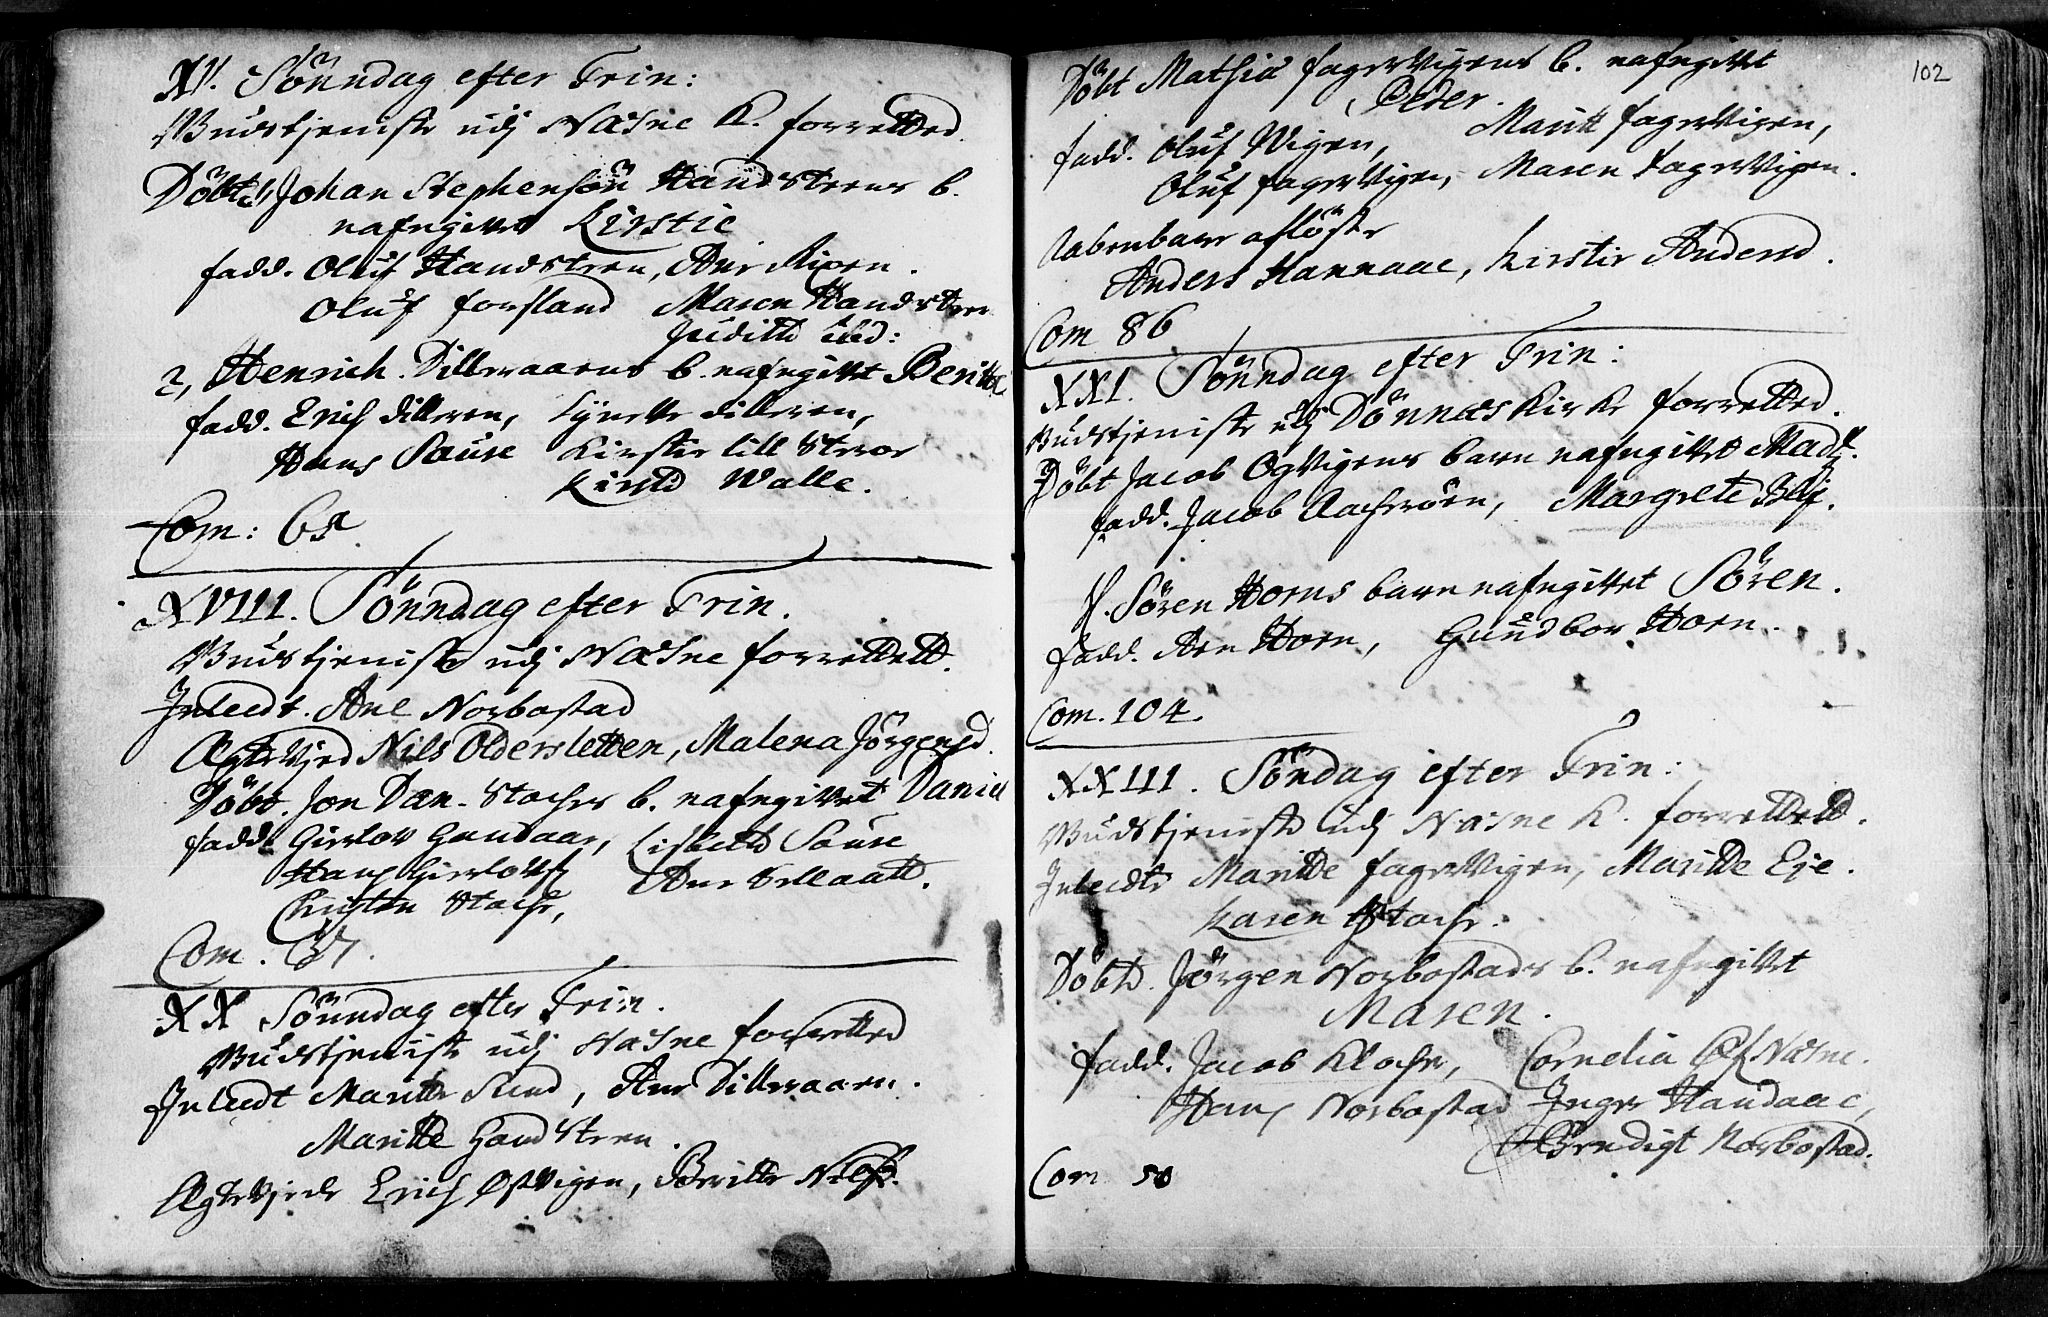 XV. Sönndag efter Trin:
Gudstjeniste udj Næsne K. forretted
Döbt 1, Johan Stephensön Handsteens b.
nafngivet Kirstie
fadd. Oluf Handsteen, Ane Ripen.
Oluf forsland Maren Handsteen
Judithe ibd:
2, Henrich Dillevaaens b. nafngivet Beritte
fadd. Erich dilleren, Synette dilleren,
Hans Sause Kirstie lill Steroe
Kirsti Walle.
Com: 65.
XVIII. Sönndag efter Trin.
Gudstjeniste udj Næsne forrettett.
Inleedt. Ane Norbostad
Ægtevjed Nils Oldersletten, Malena Jörgensd.
Döbt. Jon Dæn-Stoches b. nafngivet Daniel
fadd. Gierlov Handaae, Lisbeth Sause
Hans Gierlovs
Christen Stoche, Ane
Com. 37.
XX Sönndag efter Trin.
Gudstjeniste udj Næsne forretted
Inleedt Maritte Sund, Ane Dillevaaen.
Maritte Handsteen.
Ægtevjede Erich Østvigen, Beritte Nilsd.
102
Döbt Mathia fagervigens b. nafngivet
Peder.
fadd. Oluf Wigen, Maritt fagervigen,
Oluf fagervigen, Maren fagervigen.
Aabenbare aflöste
Anders Hannaae, Kirstie Andersd.
Com 86
XXI. Sönndag efter Trin:
Gudstjeniste udj Dönnæs Kirke forretted.
Döbt Jacob Ogvigens barn nafngivet Madz.
fadd. Jacob Aachervigen, Margrete Blij.
H. Sören Horns barn nafngivet Sören.
fadd. Aen Horn, Gundbor Horn.
Com. 104.
XXIII. Söndag efter Trin:
Gudstjeniste udj Næsne K. forrettett.
Inleedte Maritte fagervigen, Maritte Eje.
Karen Stoche.
Döbt. Jörgen Norbostads b. nafngivet
Maren.
fadd. Jacob Kloche, Cornelia Næsne.
Hans Norbostad Inger Handaae,
Brendigt Norbostad.
Com 50